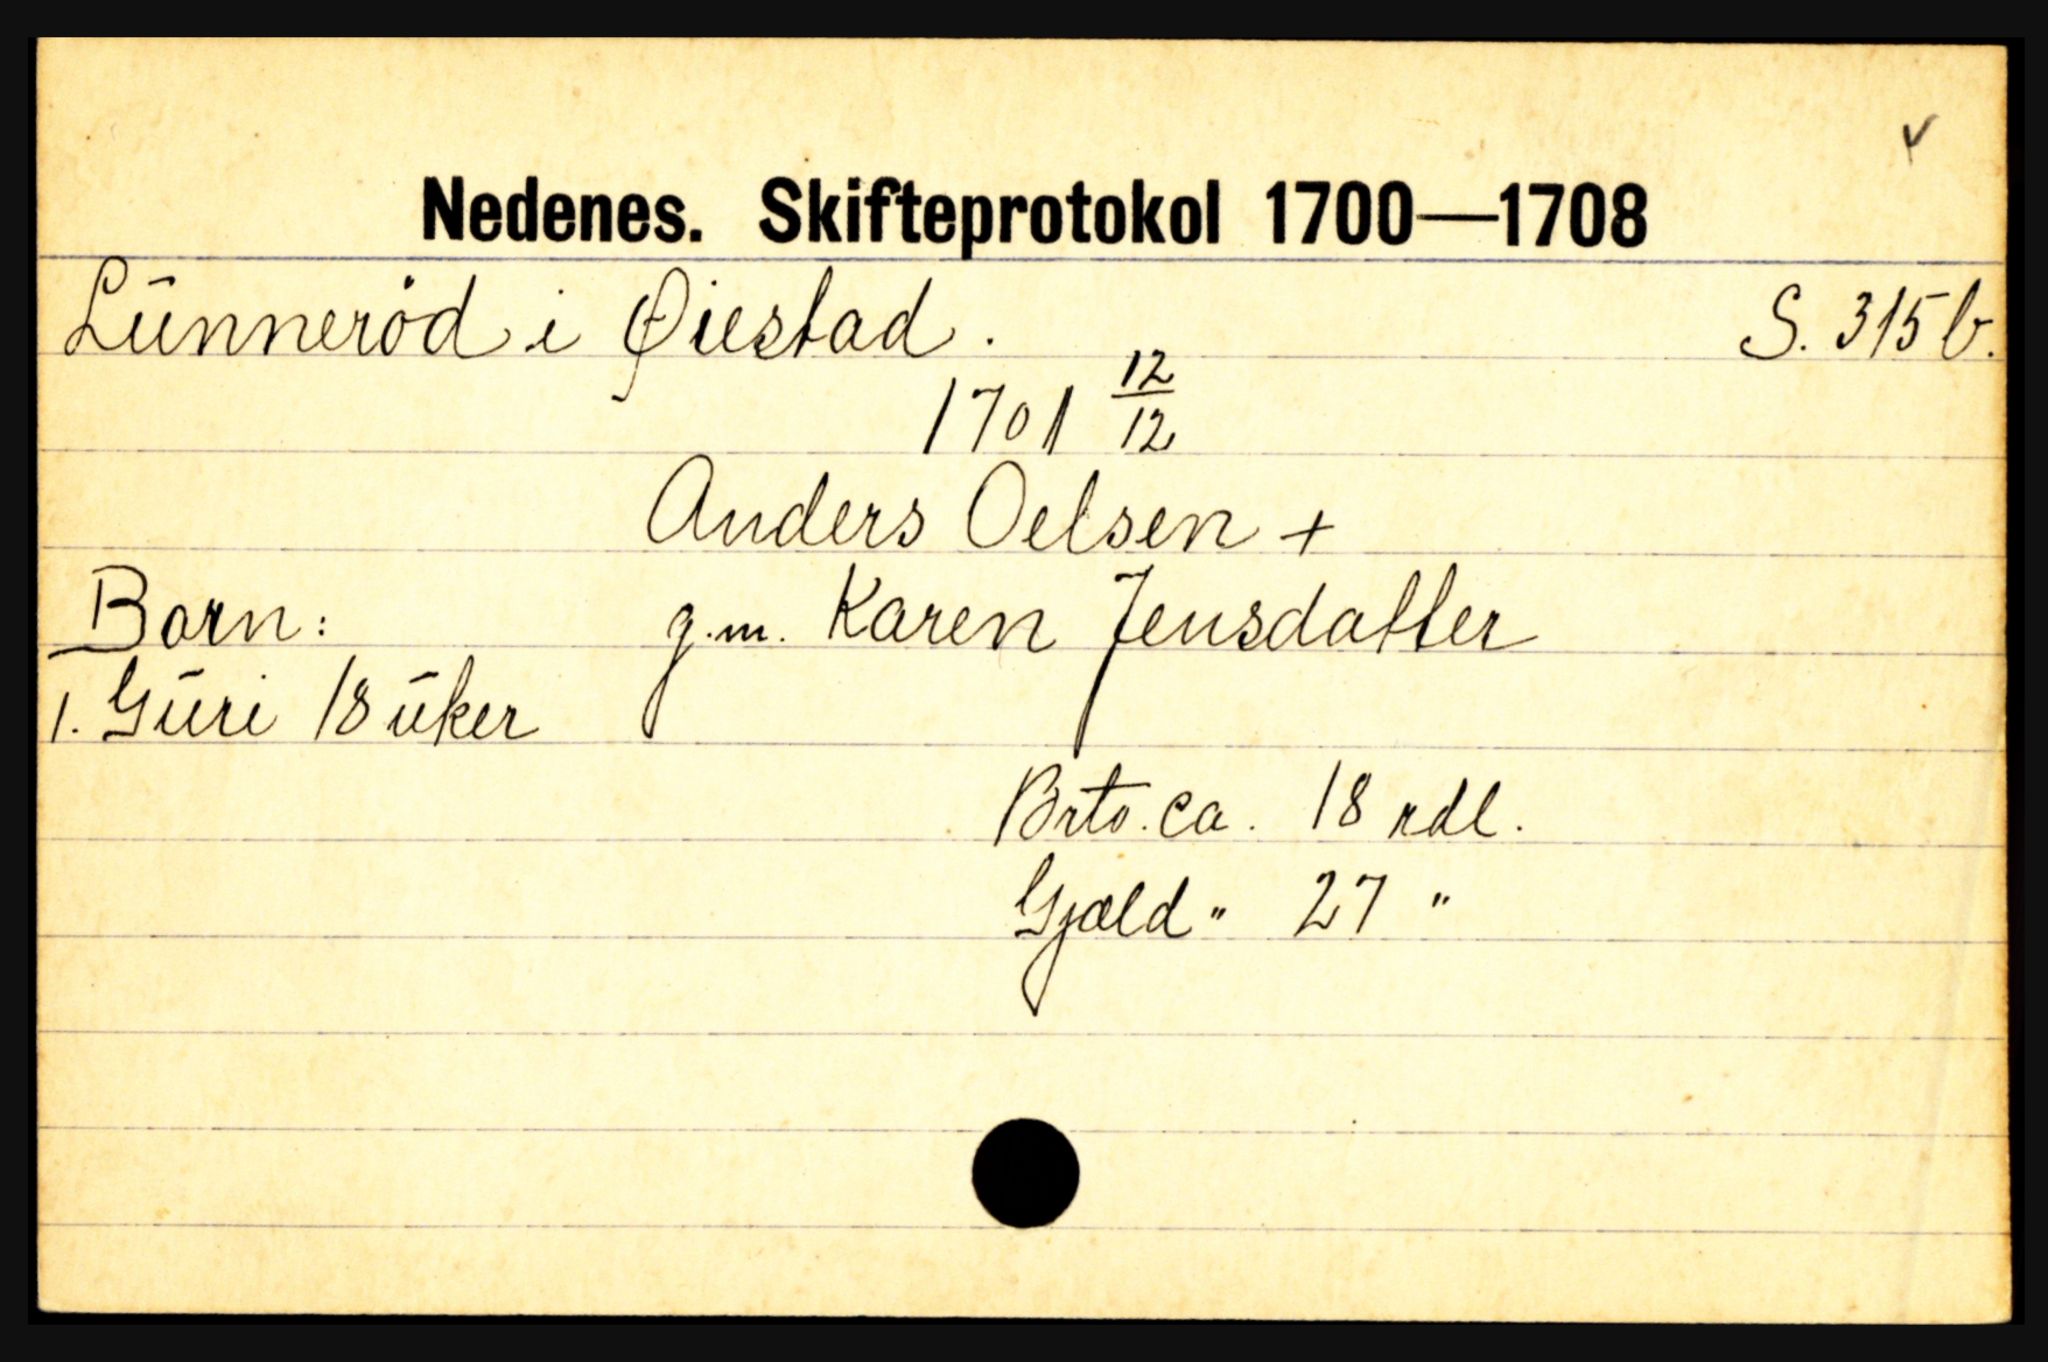 Nedenes. Skifteprotokol 1700—1708
Lunneröd i Øiestad. S. 315 b.
1701 12/12
Anders Oelsen +
Born: g.m. Karen Jensdatter
1. Guri 18 uker
Brto. ca. 18 rdl.
Gjæld " 27 "